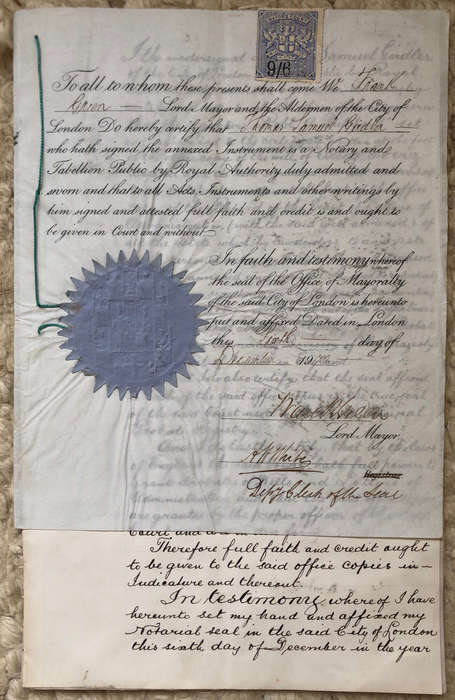 9/6
To all to whom these presents shall come We Frank
Green Lord Mayor and the Aldermen of the City of
London Do hereby certify that Thomas Samuel Girdler
who hath signed the annexed Instrument is a Notary and
Tabellion Public by Royal Authority duly admitted and
sworn and that to all Acts Instruments and other writings by
him signed and attested full faith and credit is and ought to
be given in Court and without
In faith and testimony whereof
the seal of the Office of Mayoralty
of the said City of London is hereunto
put and affixed Dated in London
this day of
December 19
Lord Mayor
Registrar
Depy Clerk of the Seal
Court and
Therefore full faith and credit ought
to be given to the said office copies in
Judicature and thereout.
In testimony whereof I have
hereunto set my hand and affixed my
Notarial seal in the said City of London
this sixth day of December in the year